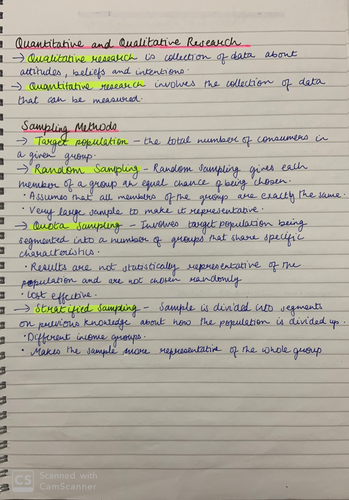 Quantitative and Qualitative Research
→ Qualitative research is collection of data about
attitudes, beliefs and intentions.
→ Quantitative research involves the collection of data
that can be measured.
Sampling Methods
→ Target population – the total number of consumers in
a given group.
→ Random Sampling – Random Sampling gives each
member of a group an equal chance of being chosen.
• Assumes that all members of the group are exactly the same.
• Very large sample to make it representative.
→ Quota Sampling – Involves target population being
segmented into a number of groups that share specific
characteristics.
• Results are not statistically representative of the
population and are not chosen randomly
• Cost effective.
→ Stratified Sampling – Sample is divided into segments
on previous knowledge about how the population is divided up.
• Different income groups.
• Makes the sample more representative of the whole group
CS Scanned with
CamScanner